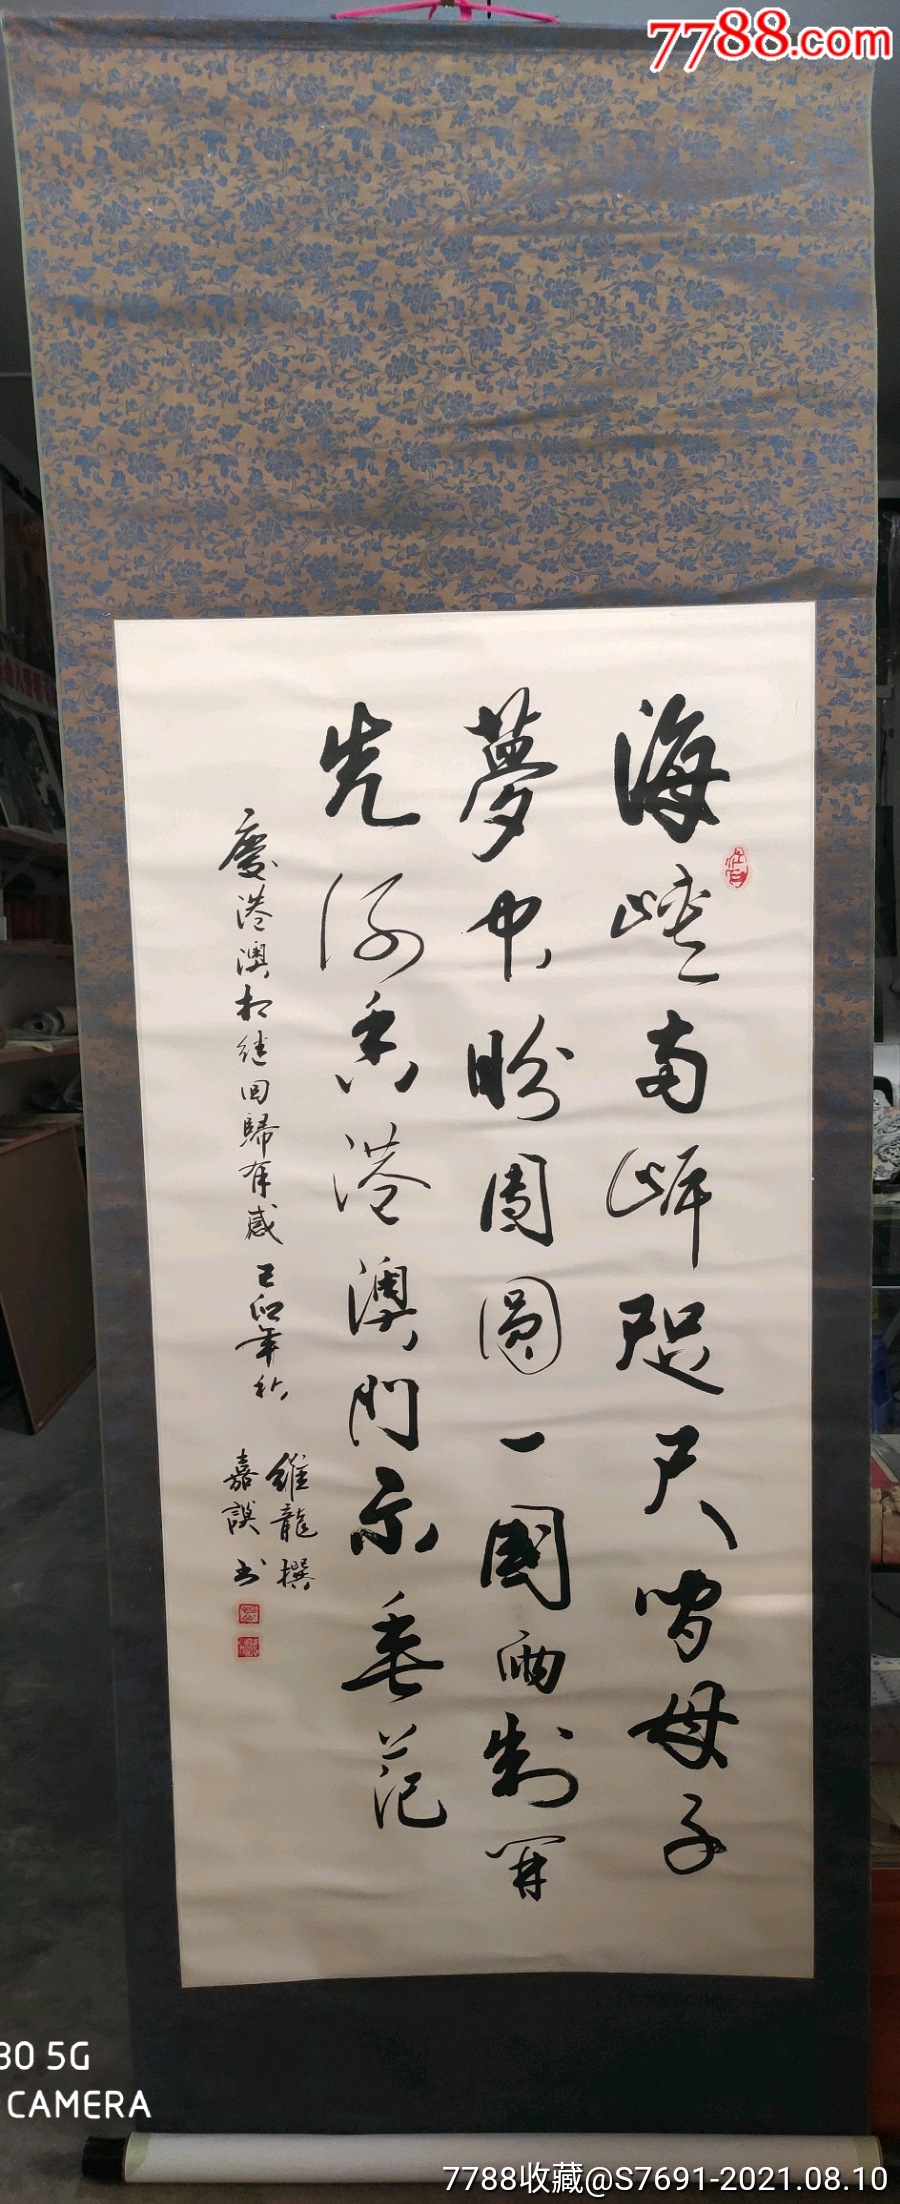 7788.com
海峡兩岸咫尺間母子
夢中盼團圓一國兩制開
先河香港澳門示垂范
慶港澳相继回歸有感 己卯年秋
維龍撰
嘉謨书
30 5G
CAMERA
7788收藏@S7691-2021.08.10